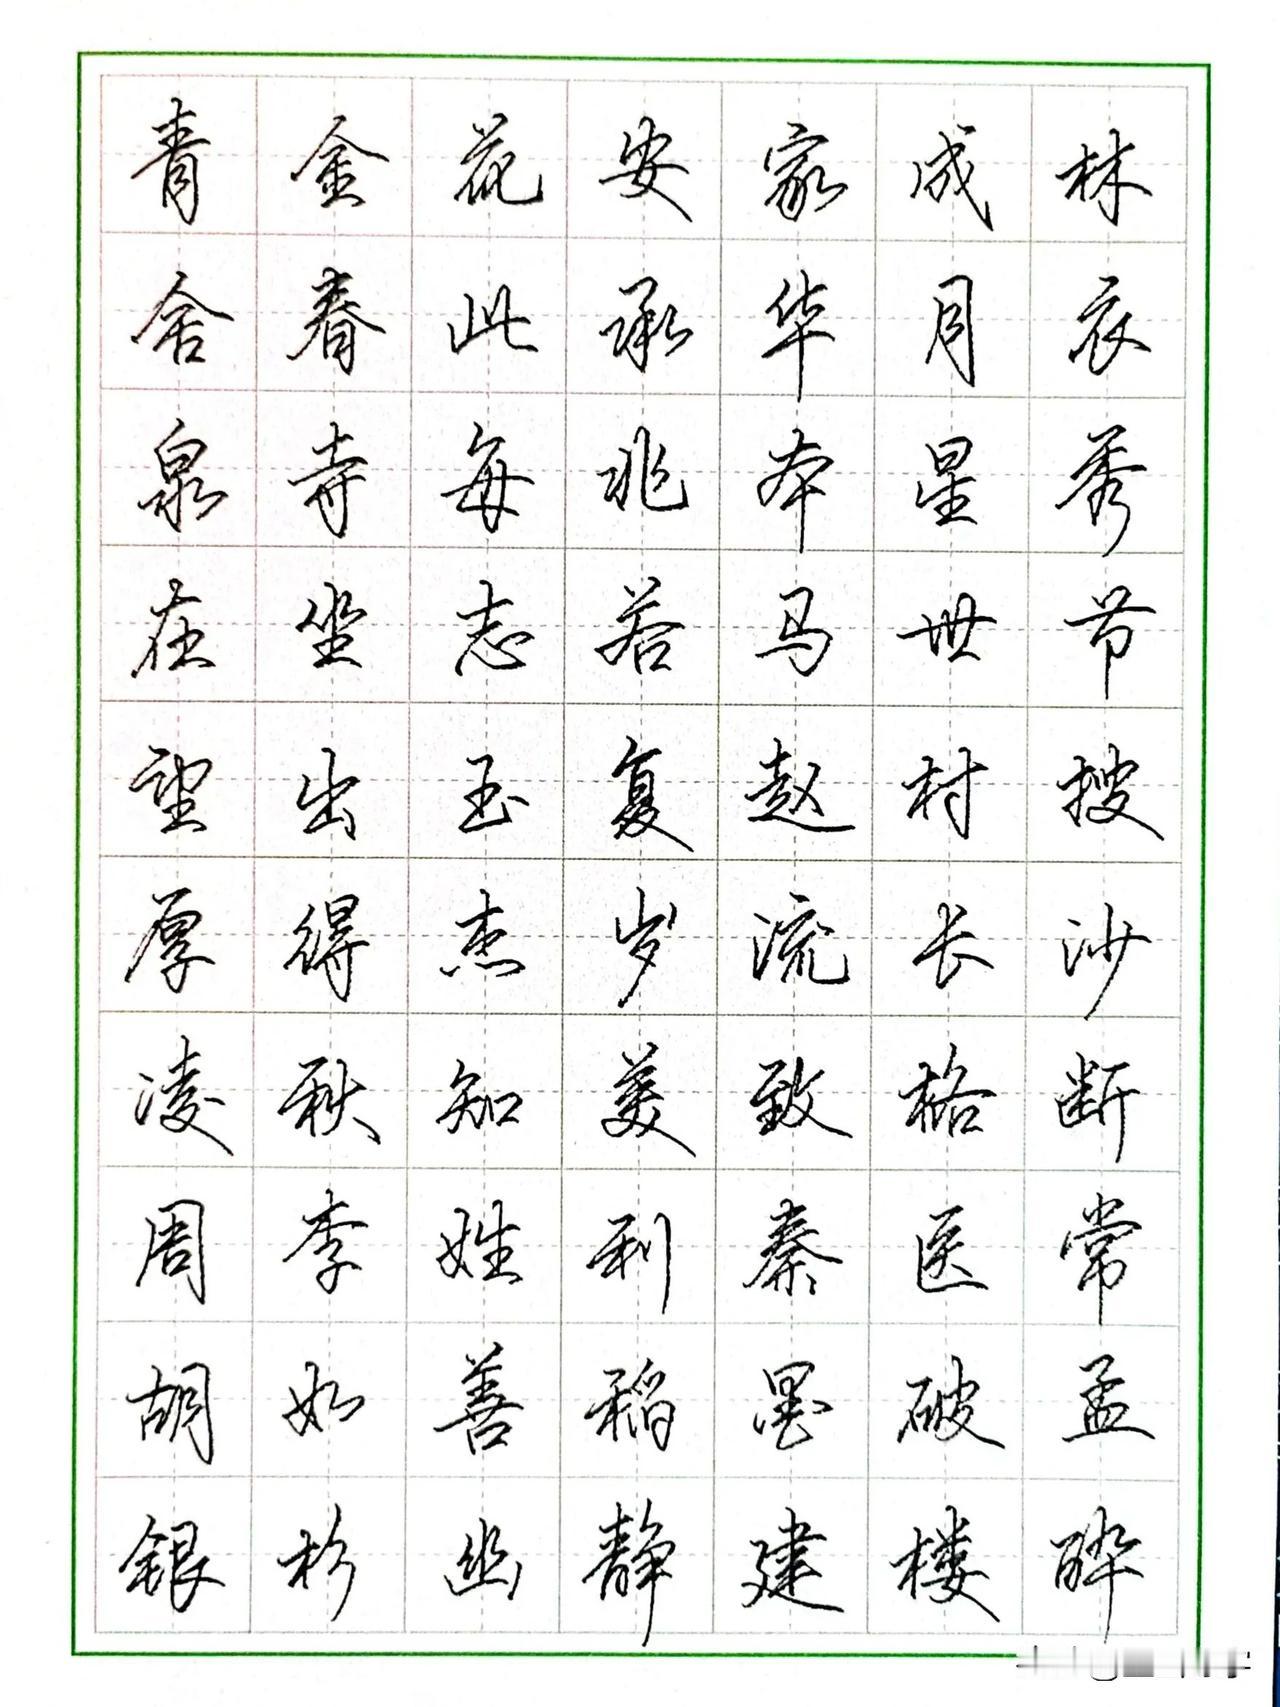 青金花安家成林
舍春此承华月衣
泉寺每兆本星秀
在坐志若马世节
望出玉复赵村搜
厚得杰岁流长沙
凌秋知美致格断
周李姓利秦医常
胡如善稻墨破孟
银杉幽静建楼酔